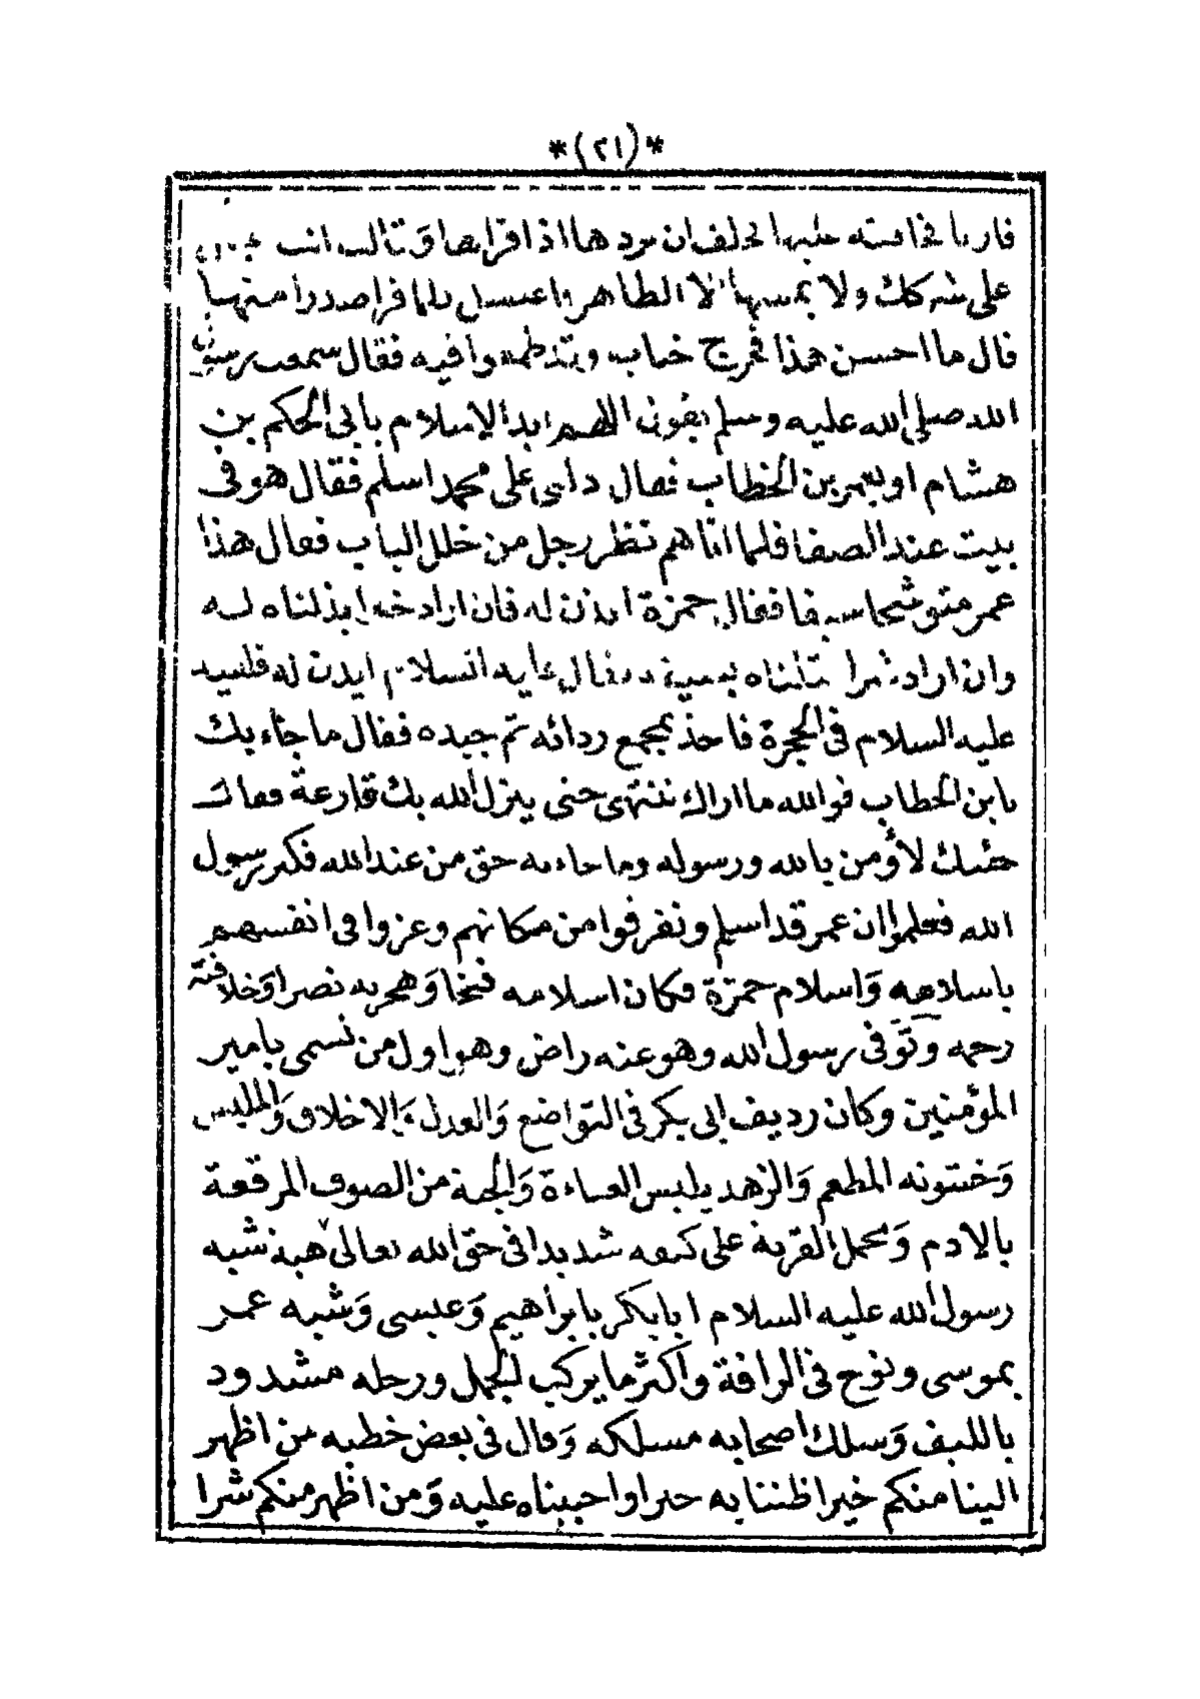 *(٢١)*
عليها فحلف ان يردها اذا قراها وقالت انت
على شركك ولا يمسها الا الطاهر واغتسل فلما قرا صدرا منها
قال ما احسن هذا فخرج خباب وفيه فقال سمعت رسول
الله صلى الله عليه وسلم يقول اللهم ايد الاسلام بابى الحكم بن
هشام او بعمر بن الخطاب فقال دلنى على محمد اسلم فقال هو فى
بيت عند الصفا فلما اتاهم نظر رجل من خلل الباب فقال هذا
عمر متوشحا سيفا فقال حمزة ايذن له فان اراد خيرا بذلناه له
وان اراد شرا قتلناه بسيفه فقال عليه السلام ايذن له فلقيه
عليه السلام فى الحجرة فاخذ بمجمع ردائه ثم جبده فقال ما جاء بك
يابن الخطاب فوالله ما اراك تنتهى حتى ينزل الله بك قارعة فقال
جئتك لأومن بالله ورسوله وما جاء به حق من عند الله فكبر رسول
الله فعلموا ان عمر قد اسلم وتفرقوا من مكانهم وعزوا فى انفسهم
باسلامه وَاسلام حمزة فكان اسلامه فتحا وَهجرته نصرا وَخلافته
رحمه وتوَفى رسول الله وهو عنه راض وهو اول من تسمى بامير
المؤمنين وكان رديف ابى بكر فى التواضع وَالعدل وَالاخلاق وَالملبس
وَخشونه المطعم وَالزهد يلبس العباءة وَالجبة من الصوف المرقعة
بالادم وَيحمل القربة على كتفه شديدا فى حق الله تعالى هيبة شبه
رسول الله عليه السلام ابابكر بابراهيم وَعيسى وَشبه عمر
بموسى ونوح فى الرافة واكثر ما يركب الجمل ورحله مشدود
بالليف وَسلك اصحابه مسلكه وَقال فى بعض خطبه من اظهر
الينا منكم خيرا ظننا به خيرا واحببناه عليه وَمن اظهر منكم شرا